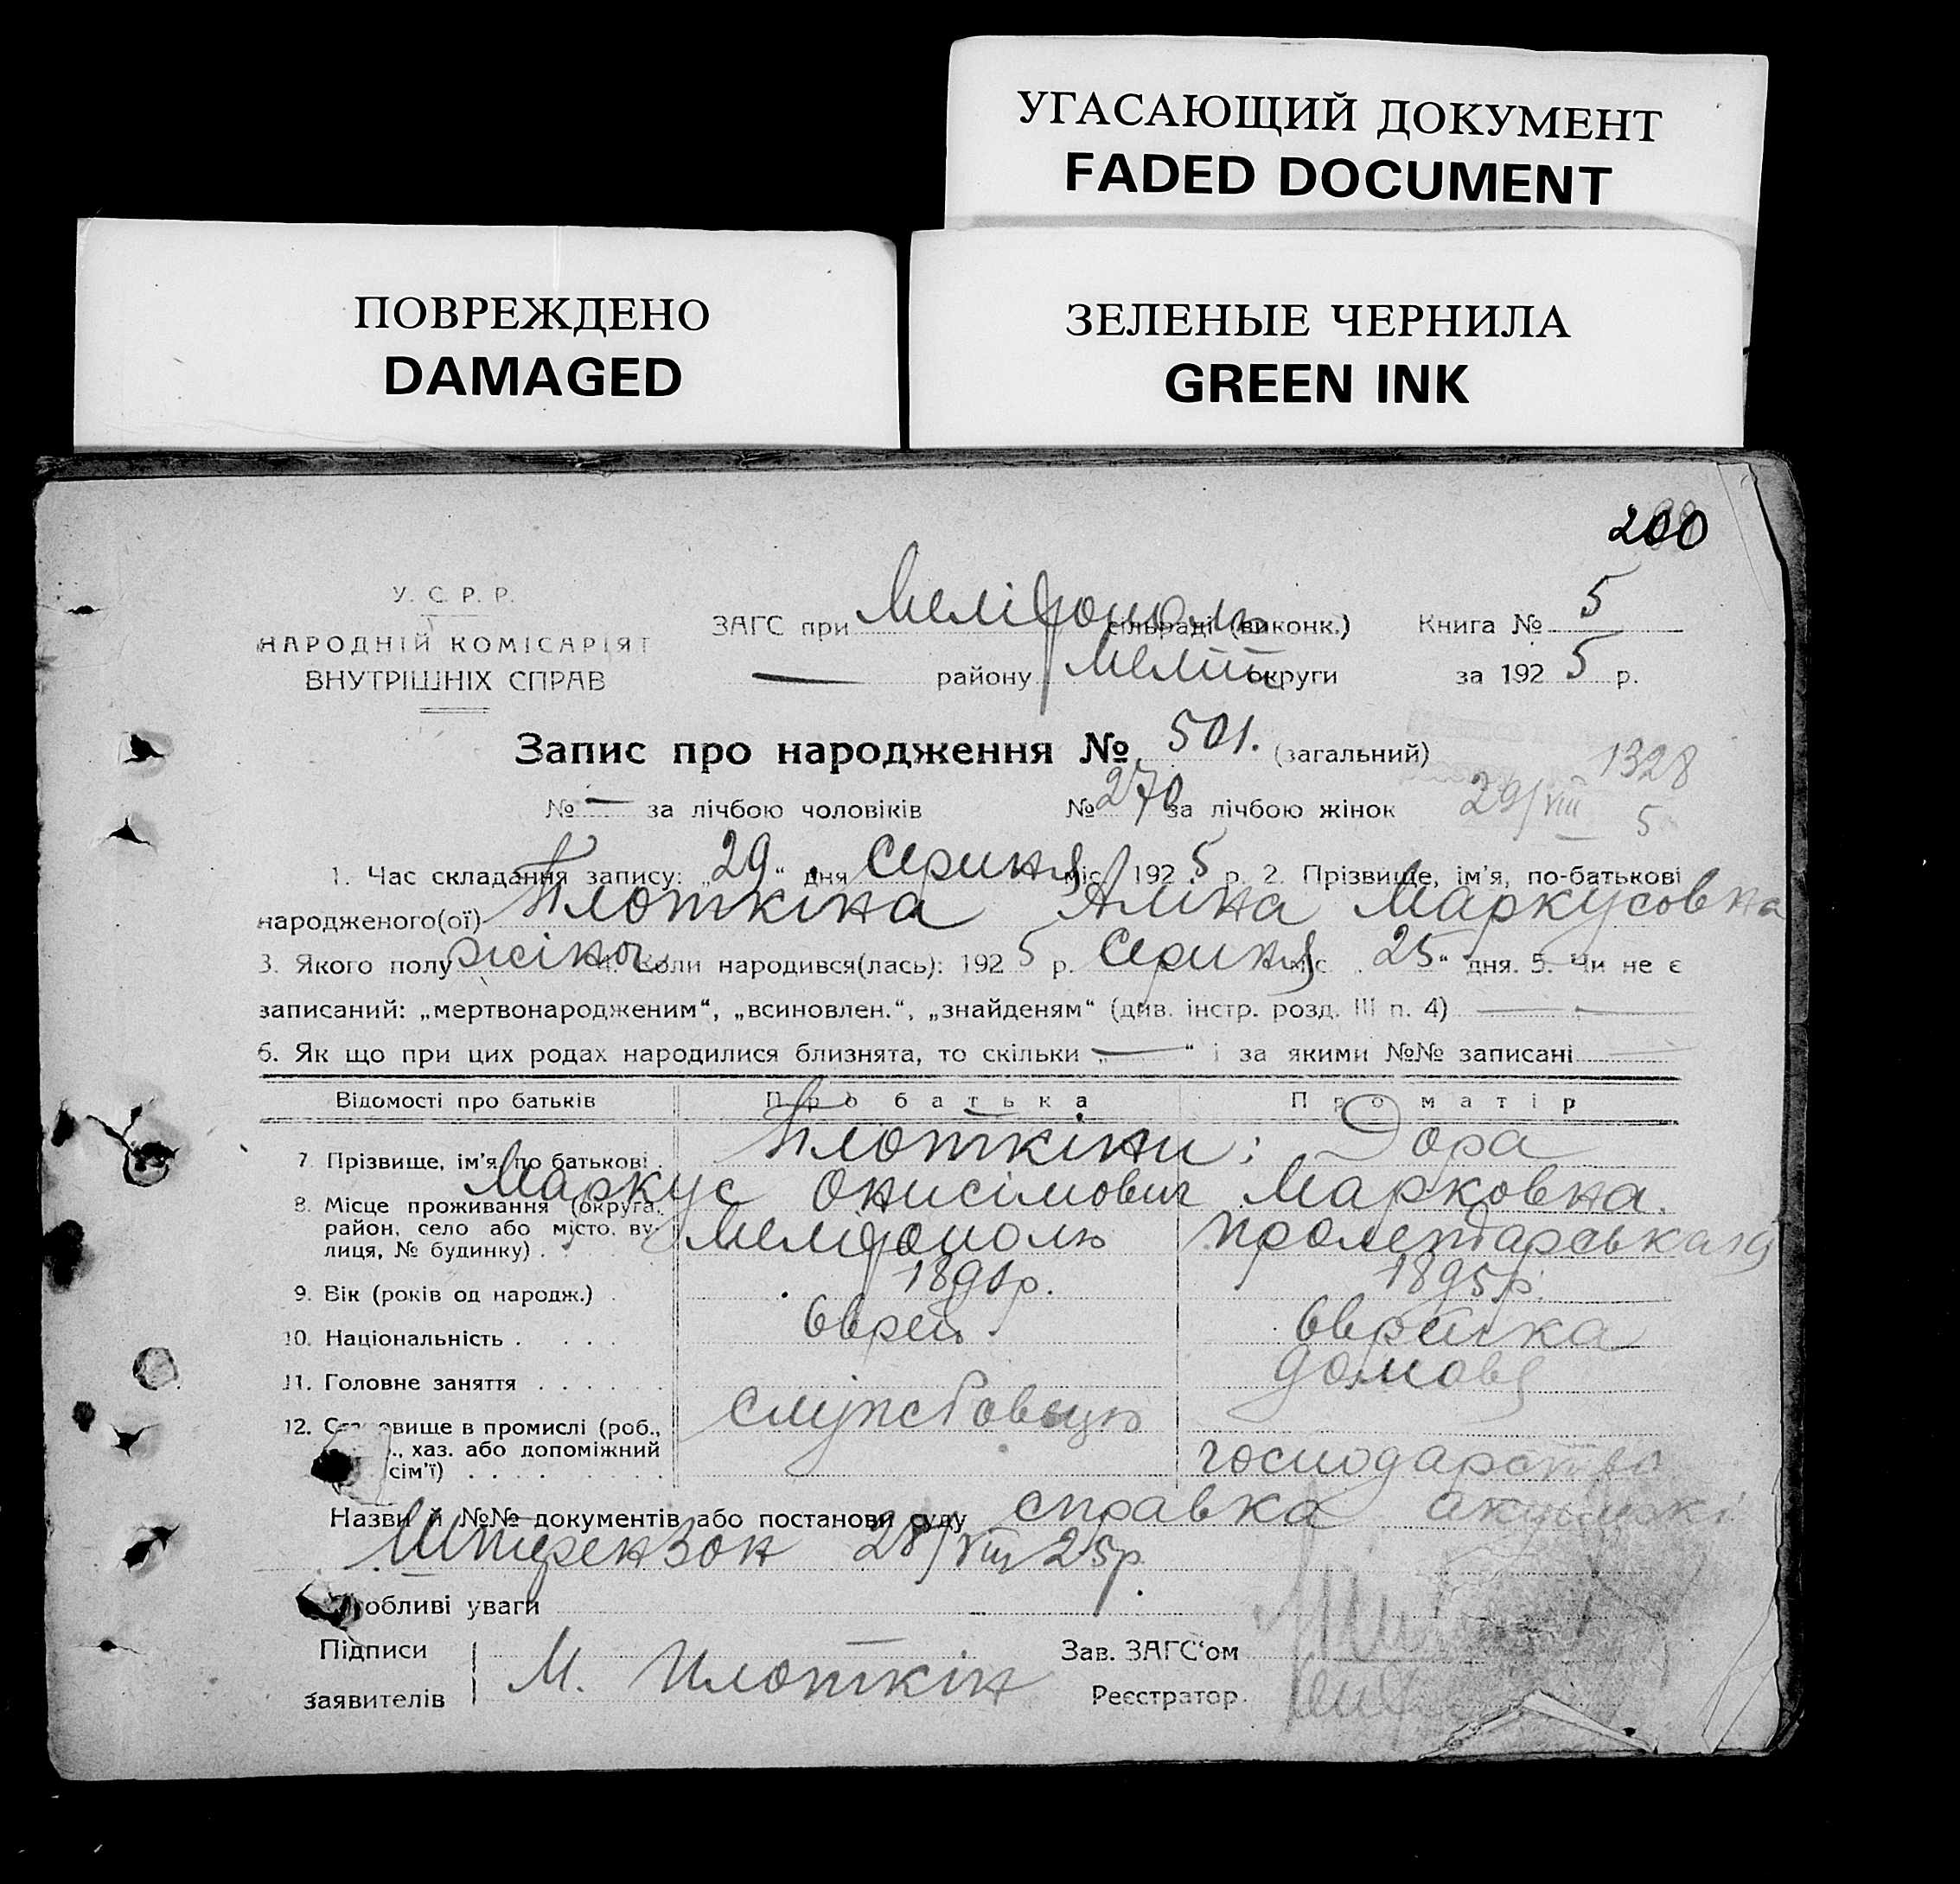 УГАСАЮЩИЙ ДОКУМЕНТ
FADED DOCUMENT
ПОВРЕЖДЕНО
DAMAGED
ЗЕЛЕНЫЕ ЧЕРНИЛА
GREEN INK
200
У. С. Р. Р.
НАРОДНІЙ КОМІСАРІЯТ
ВНУТРІШНІХ СПРАВ
ЗАГС при Мелітополь сільраді (виконк.) Книга № 5
— району Меліт округи за 1925 р.
Запис про народження № 501. (загальний)
1328
№ — за лічбою чоловіків № 270 за лічбою жінок 29/VIII 5
1. Час складання запису: „29“ дня Серпня міс. 1925 р. 2. Прізвище, ім'я, по-батькові
народженого(ої) Плоткіна Аліна Маркусовна
3. Якого полу жіноч. 4. Коли народився(лась): 1925 р. Серпня міс. „25“ дня. 5. Чи не є
записаний: „мертвонародженим“, „всиновлен.“, „знайденям“ (див. інстр. розд. III п. 4) —
6. Як що при цих родах народилися близнята, то скільки „—“ і за якими №№ записані
Відомості про батьків Про батька Про матір
7. Прізвище, ім'я, по батькові. Плоткіни; Дора
Маркус Онисімович Марковна.
8. Місце проживання (округа,
район, село або місто, ву-
лиця, № будинку) . Мелітополь Пролетарська 19
9. Вік (років од народж.) . 1890р. 1895р.
10. Національність . Єврей Єврейка
11. Головне заняття . . . . . . Службовець домове
12. Становище в промислі (роб.,
., хаз. або допоміжний
сім'ї) . . . . господарство
Назви й №№ документів або постанови суду справка акушерки
Штерензон 28/VIII 25р.
Особливі уваги
Підписи
заявителів М. Плоткін
Зав. ЗАГС'ом
Реєстратор